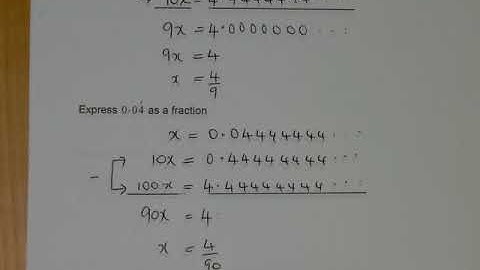 10x = 4.4444444 ...
9x = 4.0000000 ...
9x = 4
x = 4/9
Express 0.04̇ as a fraction
x = 0.04444444 ...
10x = 0.44444444 ...
- 100x = 4.44444444 ...
90x = 4
x = 4/90